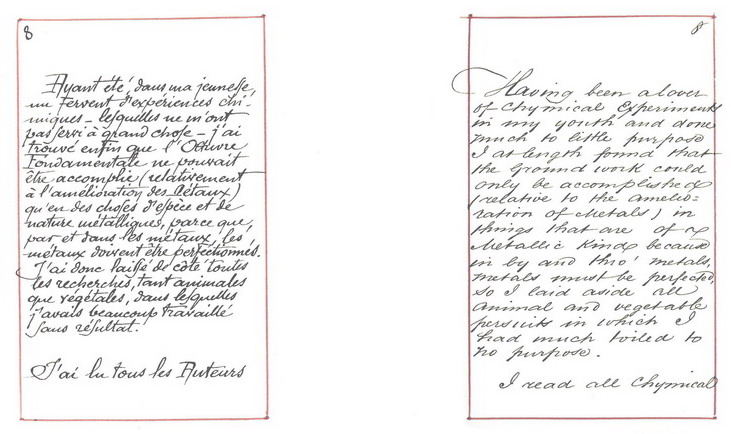 8
Ayant été, dans ma jeunesse,
un fervent d'expériences chi-
miques – lesquelles ne m'ont
pas servi à grand chose – j'ai
trouvé enfin que l'Oeuvre
Fondamentale ne pouvait
être accomplie (relativement
à l'amélioration des Métaux)
qu'en des choses d'espèce et de
nature métalliques, parce que,
par et dans les métaux, les
métaux doivent être perfectionnés.
J'ai donc laissé de côté toutes
les recherches, tant animales
que végétales, dans lesquelles
j'avais beaucoup travaillé
sans résultat.
J'ai lu tous les Auteurs
8
Having been a lover
of Chymical Experiments
in my youth and done
much to little purpose
I at length found that
the Ground work could
only be accomplished
(relative to the amelio-
ration of Metals) in
things that are of a
Metallic Kind because
in by and thro' metals,
metals must be perfected,
so I laid aside all
animal and vegetable
persuits in which I
had much toiled to
no purpose.
I read all Chymical